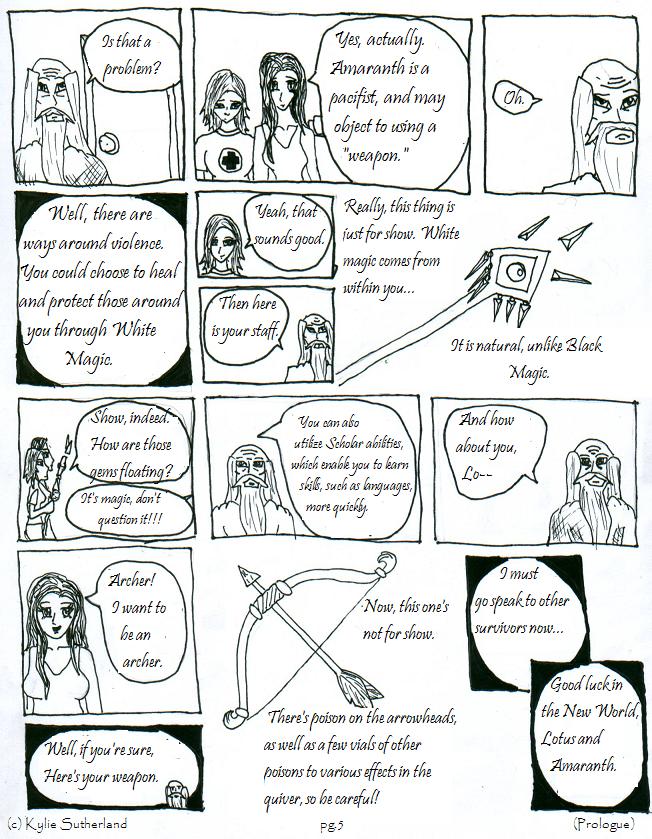 Is that a
problem?
Yes, actually.
Amaranth is a
pacifist, and may
object to using a
"weapon."
Oh.
Well, there are
ways around violence.
You could choose to heal
and protect those around
you through White
Magic.
Yeah, that
sounds good.
Then here
is your staff.
Really, this thing is
just for show. White
magic comes from
within you...
It is natural, unlike Black
Magic.
Show, indeed.
How are those
gems floating?
It's magic, don't
question it!!!
You can also
utilize Scholar abilities,
which enable you to learn
skills, such as languages,
more quickly.
And how
about you,
Lo--
Archer!
I want to
be an
archer.
Well, if you're sure,
Here's your weapon.
Now, this one's
not for show.
There's poison on the arrowheads,
as well as a few vials of other
poisons to various effects in the
quiver, so be careful!
I must
go speak to other
survivors now...
Good luck in
the New World,
Lotus and
Amaranth.
(c) Kylie Sutherland
pg.5
(Prologue)